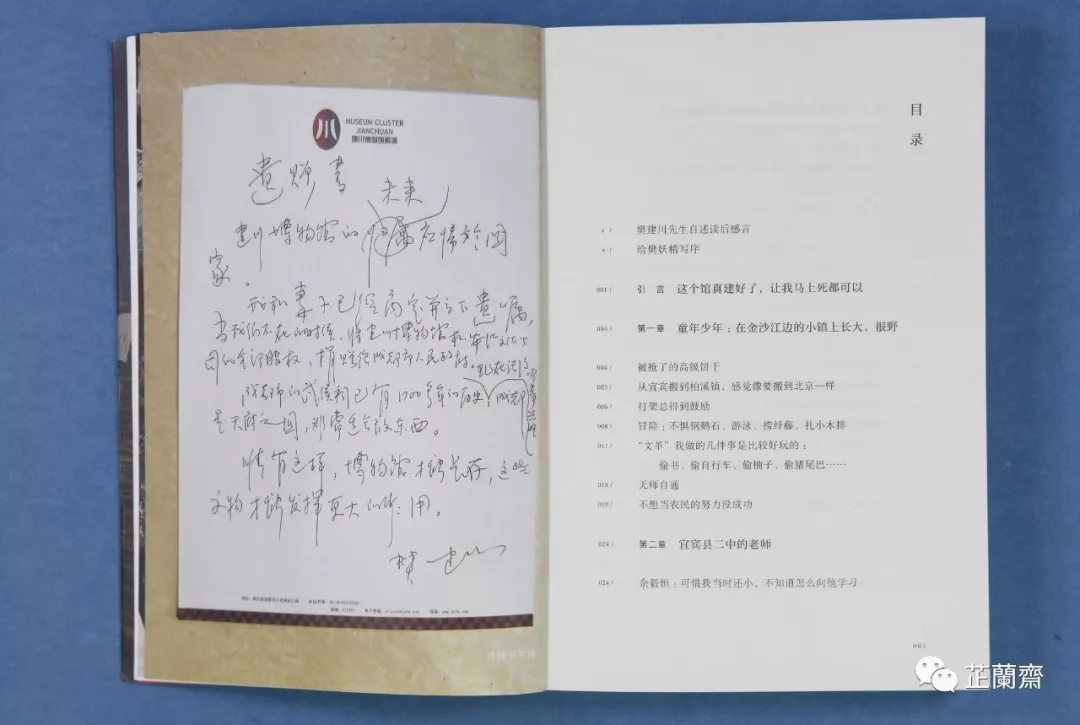 MUSEUM CLUSTER
JIANCHUAN
建川博物馆聚落
遗赠书
未来
建川博物馆的 应归于国
家。
我和妻子已经商定并立下遗嘱,
当我们不在的时候,将建川博物馆和
司的全部股权,捐赠给成都市人民政府。
成都的武侯祠已有1700多年的历史,成都
是天府之国,非常适合放东西。
惟有这样,博物馆才能长存,这些
文物才能发挥更大的作用。
樊建川
目录
樊建川先生自述读后感言
给樊妖精写序
001 / 引 言 这个馆真建好了,让我马上死都可以
004 / 第一章 童年少年:在金沙江边的小镇上长大,很野
004 / 被抢了的高级饼干
005 / 从宜宾搬到柏溪镇,感觉像要搬到北京一样
006 / 打架总得到鼓励
008 / 冒险:不惧钢鹅石、游泳、捞纤藤、扎小木排
011 / “文革”我做的几件事是比较好玩的:
偷书、偷自行车、偷柚子、偷猪尾巴……
018 / 无师自通
019 / 不想当农民的努力没成功
024 / 第二章 宜宾县二中的老师
024 / 余毅恒:可惜我当时还小,不知道怎么向他学习
001
芷蘭齋